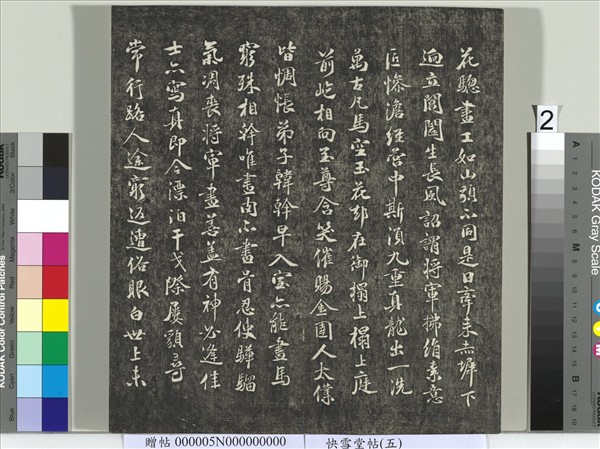 花驄畫工如山貌不同是日牽來赤墀下
迥立閶闔生長風詔謂將軍拂絹素意
匠慘澹經營中斯須九重真龍出一洗
萬古凡馬空玉花却在御榻上榻上庭
前屹相向至尊含笑催賜金圉人太僕
皆惆悵弟子韓幹早入室亦能畫馬
窮殊相幹唯畫肉不畫骨忍使驊騮
氣凋喪將軍畫善蓋有神必逢佳
士亦寫真即今漂泊干戈際屢貌尋
常行路人途窮返遭俗眼白世上未
2
贈帖 000005N000000000 快雪堂帖(五)
KODAK Color Control Patches
Blue Cyan Green Yellow Red Magenta White 3/Color Black
KODAK Gray Scale
A 1 2 3 4 5 6 M 8 9 10 11 12 13 14 15 B 17 18 19